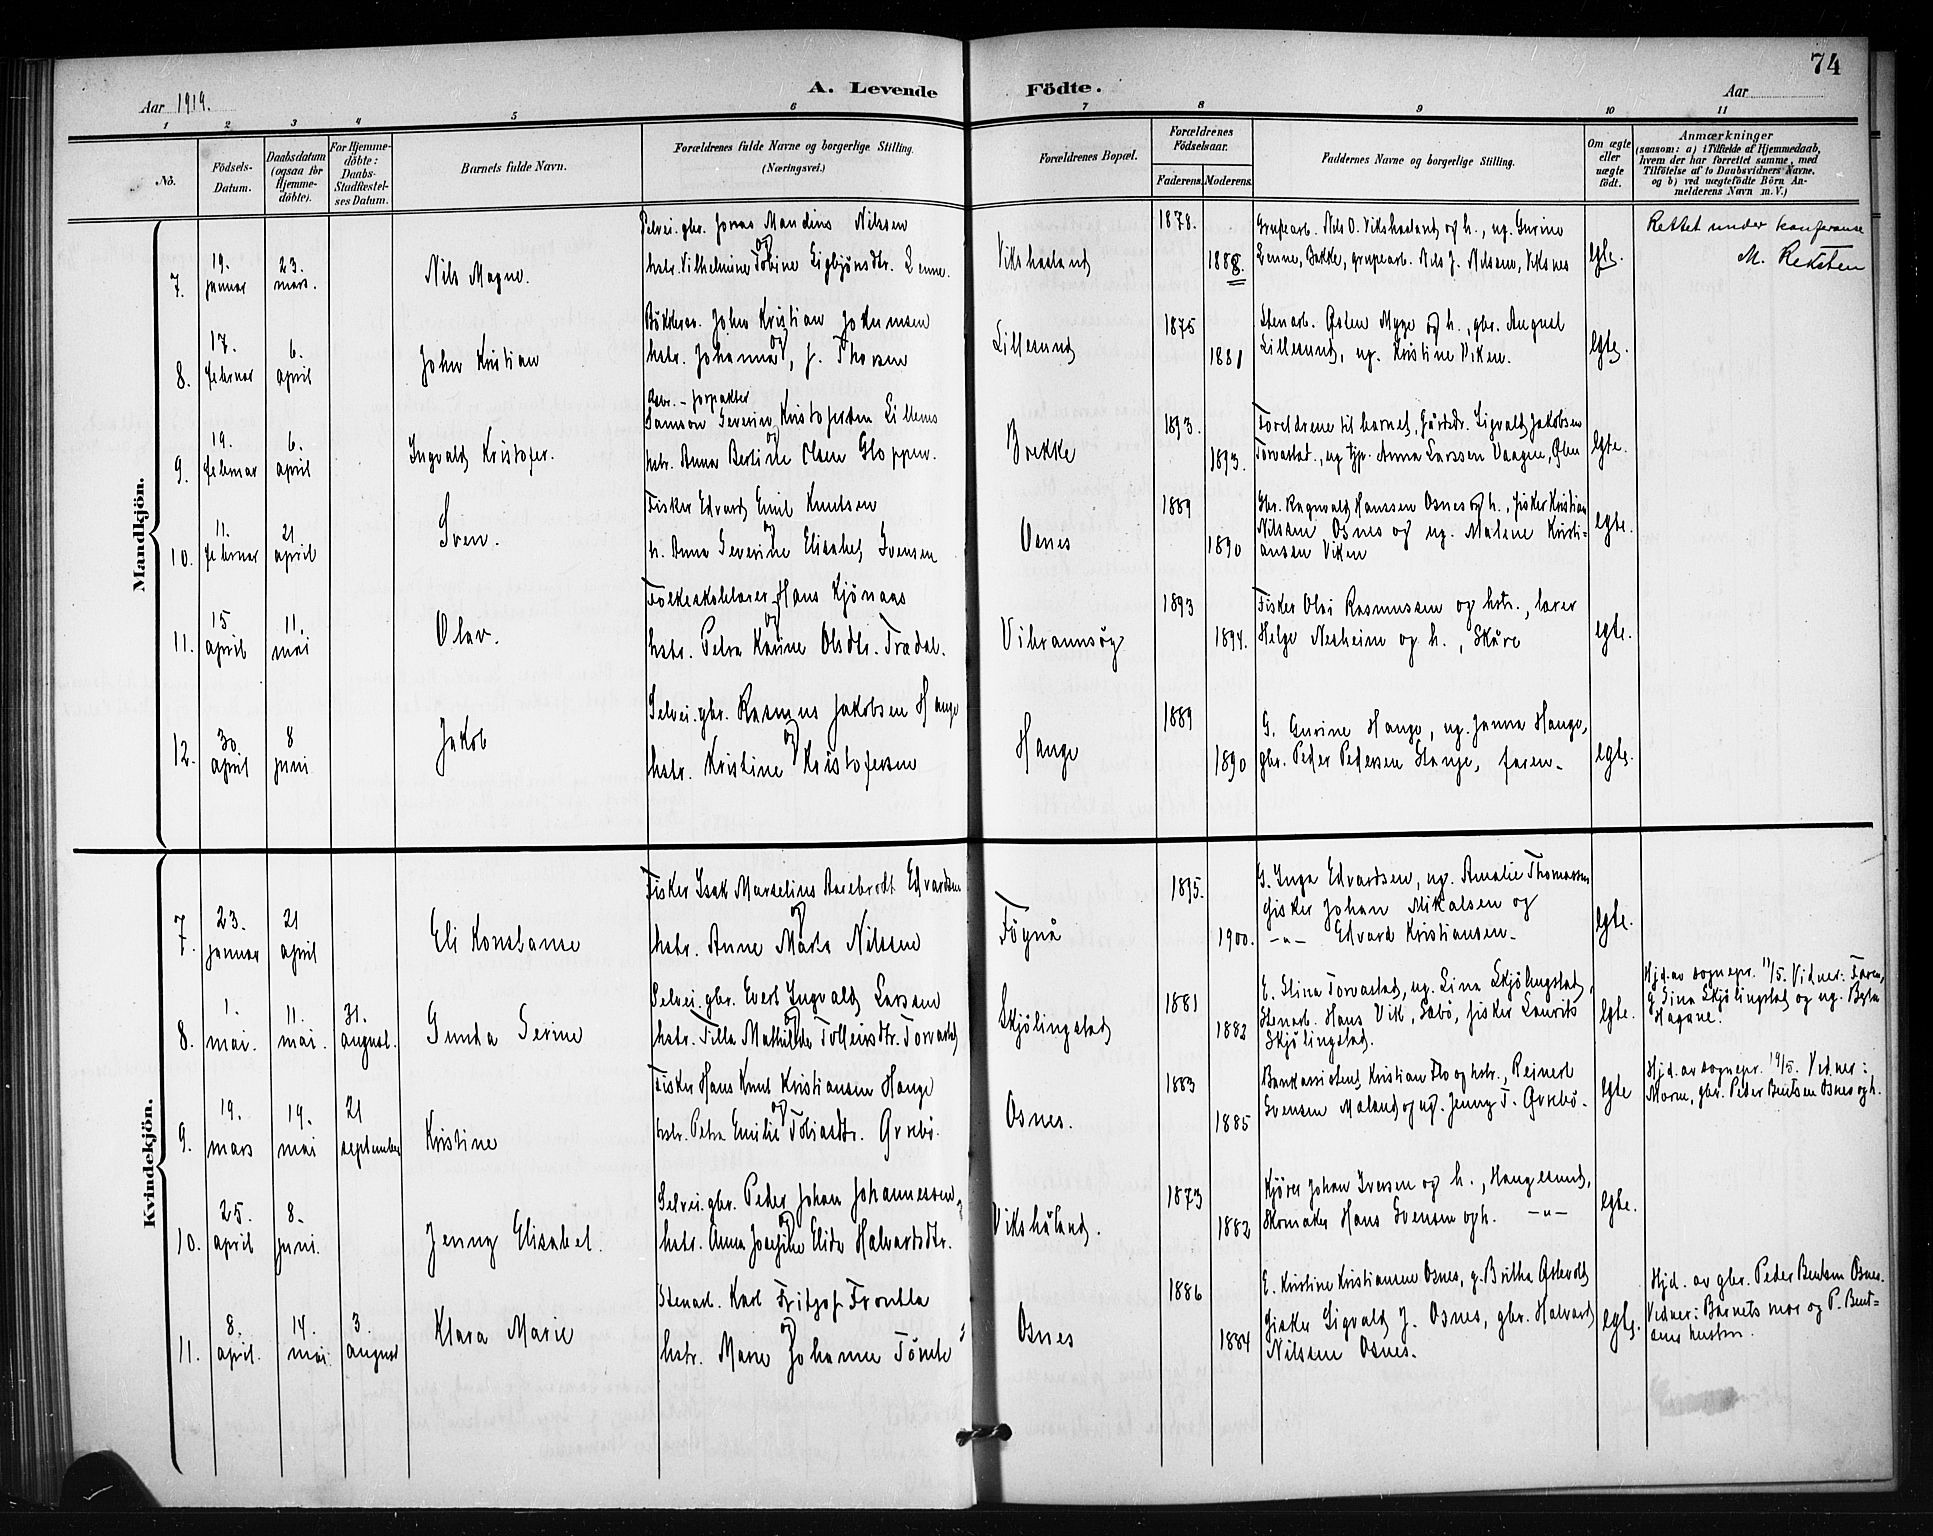 74
Aar 1919.
A. Levende
Födte.
Aar
1 2 3 4 5 6 7 8 9 10 11
No.
Födsels-
Datum.
Daabsdatum
(ogsaa for
Hjemme-
döbte).
For Hjemme-
döbte:
Daabs-
Stadfæstel-
ses Datum.
Barnets fulde Navn.
Forældrenes fulde Navne og borgerlige Stilling.
(Næringsvei.)
Forældrenes Bopæl.
Forældrenes
Födselsaar.
Faderens.
Moderens.
Faddernes Navne og borgerlige Stilling.
Om ægte
eller
uægte
födt.
Anmærkninger
(saasom: a) i Tilfælde af Hjemmedaab,
hvem der har forrettet samme, med
Tilföielse af to Daabsvidners Navne,
og b) ved uægtefödte Börn An-
melderens Navn m. V.)
Mandkjön.
7.
19.
januar
23.
mars.
Nils Magne.
Selvei. gbr. Jonas Mandius Nilsen
og
hstr. Vilhelmine Tobine Sigbjönsdtr. Lenne.
Vikshaaland
1878.
1888.
Grubearb. Nils O. Vikshaaland og h., ug. Gurine
Lenne, Bakke, grubearb. Nils J. Nilsen, Viksnes
egte.
Rettet under konferanse
M. Reksten
8.
17.
februar
6.
april
John Kristian
John Kristian Jokumsen
og
hstr. Johanna, f. Thorsen
Lillesund
1875
1881
Stenarb. Östen Myge og h., gbr. August
Lillesund, ug. Kristine Viken.
egte.
9.
19.
februar
6.
april
Ingvald Kristofer.
forpakter
Samson Severin Kristofersen Lillenes
og
hstr. Anna Bertine Olsen Gloppen.
Brekke
1893.
1893.
Foreldrene til barnet, Gårdbr. Sigvald Jakobsen
Torvastad, ug typ. Anna Larssen Vaagen, Ölen
egte.
10.
11.
februar
21
april
Sven.
Fisker Edvard Emil Knutsen
og
h. Anna Severine Elisabet Svensen
Osnes
1889
1890
Gbr. Ragnvald Hanssen Osnes og h., fisker Kristian
Nilsen Osnes og ug. Malene Kristi-
ansen Viken
egte.
11.
15
april
11.
mai
Olav.
Folkeskolelærer Hans Kjönaas
og
hstr. Petra Karine Olsdtr. Trædal.
Vibrannsög
1893
1894.
Fisker Olai Rasmussen og hstr., lærer
Helge Nesheim og h., Skåre
egte.
12.
30
april
8
juni
Jakob
Selvei. gbr. Rasmus Jakobsen Hauge
og
hstr. Kristine Kristofersen
Hauge
1889
1890
G. Gurine Hauge, ug. Janna Hauge,
gbr. Peder Pedersen Hauge, faren.
egte.
Kvindekjön.
7.
23.
januar
21
april
Eli Konstanse
Fisker Isak Marselius Aarebrodt Edvardsen
og
hstr. Anne Marta Nilssen
Föynå
1895.
1900.
G. Inga Edvardsen, ug. Amalie Thomassen
fisker Johan Mikalsen og
-"- Edvard Kristiansen.
egte.
8.
1.
mai.
11.
mai.
31.
august.
Gunda Serine
Selvei. gbr. Evert Ingvald Larsen
og
hstr. Tilla Mathilde Tolleivsdtr. Torvastad
Skjölingstad
1881
1882
E. Stina Torvastad, ug. Lina Skjölingstad,
Stenarb. Hans Vik, Sæbö, fisker Laurits
Skjölingstad.
egte.
Hjd. av sognepr. 11/5. Vidner: Faren,
G. Sina Skjölingstad og ug. Berta
Hagane.
9.
19.
mars
19.
mai
21
september
Kristine
Fisker Hans Knut Kristiansen Hauge
og
hstr. Petra Emilie Tobiasdtr. Gvrebö.
Osnes.
1883
1885
Bankassistent Kristian Flo og hstr., Reinert
Svensen Maland og ug. Jenny T. Övrebö.
egte
Hjd. av sognepr. 19/5. Vidner:
Moren, gbr. Peder Bentsen Osnes og h.
10.
25.
april
8.
juni.
Jenny Elisabet.
Selvei. gbr. Peder Johan Johannessen
og
hstr. Anna Josefine Elida Halvardsdtr.
Vikshåland.
1873
1882
Kjörer Johan Iversen og h., Haugesund,
Skomaker Hans Svensen og h. -"-
egte.
11.
8.
april.
14.
mai
3.
august
Klara Marie
Stenarb. Karl Fritjof
og
hstr. Marie Johanne
Osnes
1886
1884
E. Kristine Kristiansen Osnes, g. Britha
fisker Sigvald J. Osnes, gbr. Halvard
Nilssen Osnes.
egte.
Hjd. av gbr. Peder Bentsen Osnes.
Vidner: Barnets mor og P. Bent-
sens hustru.